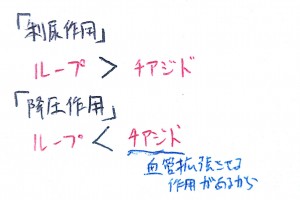 「利尿作用」
ループ > チアジド
「降圧作用」
ループ < チアジド
血管拡張させる
作用があるから